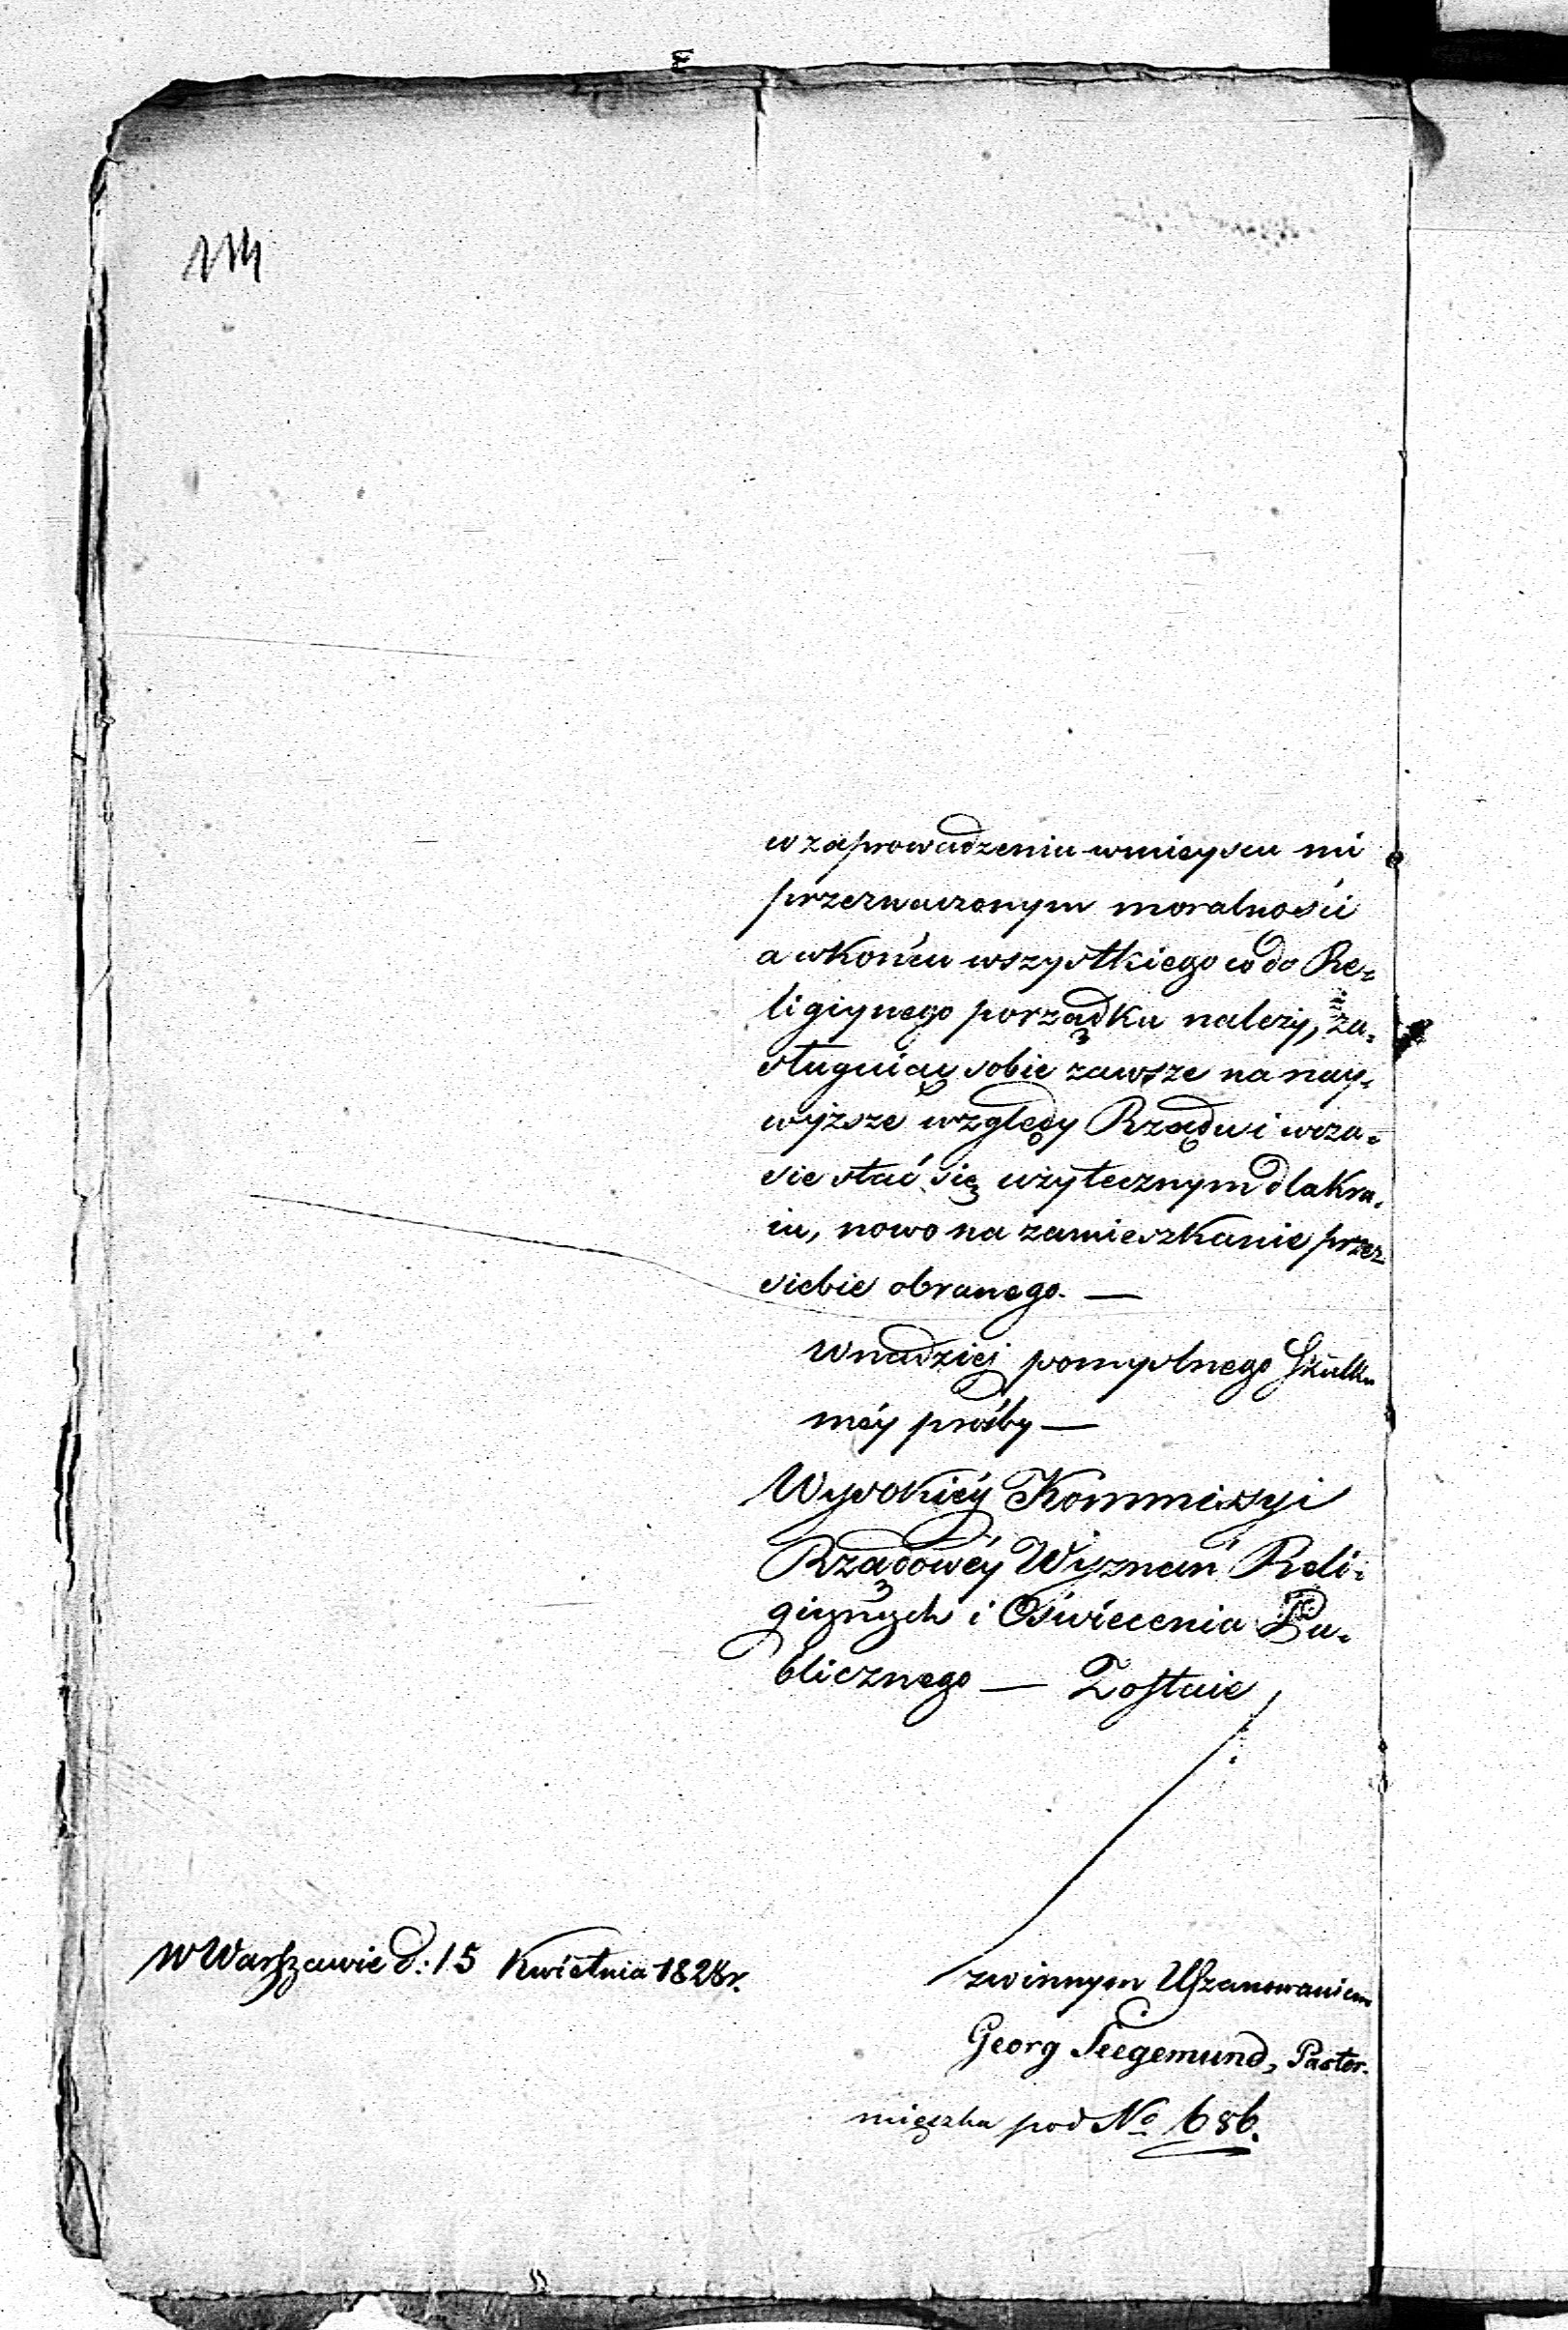 114
w zaprowadzeniu w mieyscu mi
przeznaczonym moralności
a w Końcu wszystkiego co do Re-
ligiynego porządku należy, za-
sługuiąc sobie zawsze na nay-
wyższe względy Rządu i w cza-
sie stać się użytecznym dla Kra-
iu, nowo na zamieszkanie przez
siebie obranego. —
W nadziei pomyślnego Skutku
méy prośby —
Wysokiéy Kommissyi
Rządowéy Wyznań Reli-
giynych i Oświecenia Pu-
blicznego — Zostaie
W Warszawie d: 15 Kwietnia 1828 r.
z winnym Uszanowaniem
Georg Teegemund, Pastor.
mięszka pod No 686.